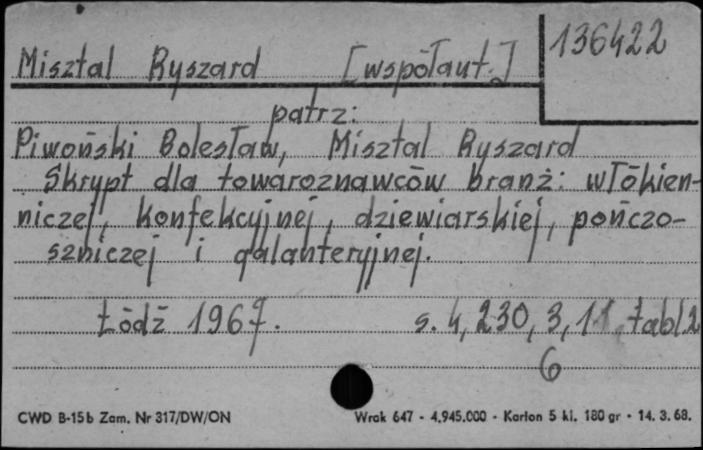 Misztal Ryszard [współaut.] 136422
patrz:
Piwoński Bolesław, Misztal Ryszard
Skrypt dla towaroznawców branż: włókien-
niczej, konfekcyjnej, dziewiarskiej, pończo-
szniczej i galanteryjnej.
Łódź 1967. s. 4, 230, 3, 11, tabl 2
6
CWD B-15b Zam. Nr 317/DW/ON Wrak 647 - 4.945.000 - Karton 5 kl. 180 gr - 14. 3. 68.